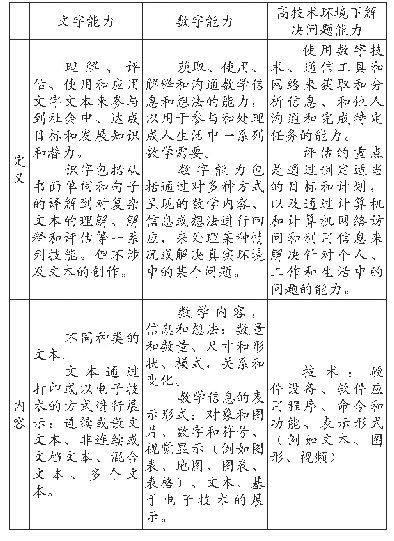 文字能力
数学能力
高技术环境下解
决问题能力
定义
理解、评
估、使用和应用
文字文本来参与
到社会中、达成
目标和发展知识
和潜力。
识字包括从
书面单词和句子
的译解到对复杂
文本的理解、解
释和评估等一系
列技能。但不涉
及文本的创作。
获取、使用、
解释和沟通数学信
息和想法的能力，
以用于参与和处理
成人生活中一系列
数学需要。
数学能力包
括通过对多种方式
呈现的数学内容、
信息或想法进行回
应，来处理某种情
况或解决真实环境
中的某个问题。
使用数字技
术、通信工具和
网络来获取和分
析信息、和他人
沟通和完成特定
任务的能力。
评估的重点
是通过制定适当
的目标和计划，
以及通过计算机
和计算机网络访
问和利用信息来
解决针对个人、
工作和生活中的
问题的能力。
内容
不同种类的
文本。
文本通过
打印或以电子技
术的方式进行展
示：连续或散文
文本、非连续或
文档文本、混合
文本、多个文
本。
数学内容，
信息和想法：数量
和数量、尺寸和形
状、模式，关系和
变化。
数学信息的表
示形式：对象和图
片、数字和符号、
视觉显示（例如图
表、地图、图表、
表格）、文本、基
于电子技术的展
示。
技术：硬
件设备、软件应
用程序、命令和
功能、表示形式
（例如文本、图
形、视频）